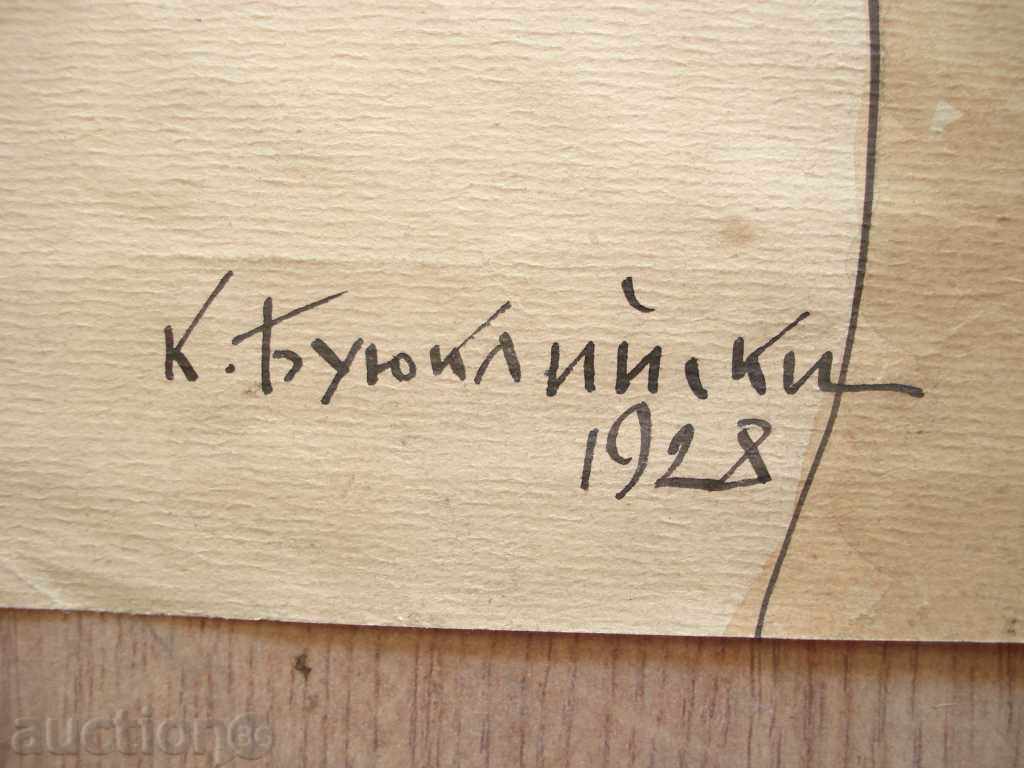 К. Буюклийски
1928
auction86